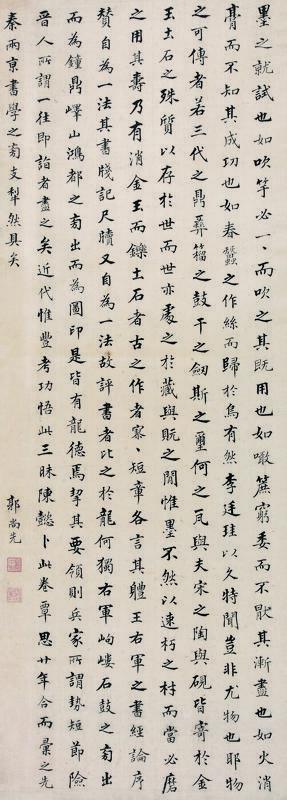 墨之就試也如吹竽必一、而吹之其既用也如噉蔗窮委而不厭其漸盡也如火消
膏而不知其成功也如春蠶之作絲而歸於烏有然李廷珪以久特聞豈非尤物也耶物
之可傳者若三代之鼎彝籀之鼓干之劒斯之璽何之瓦與夫宋之陶與硯皆寄於金
玉土石之殊質以存於世而世亦處之於藏與貦之間惟墨不然以速朽之材而當必磨
之用其壽乃有消金玉而鑠土石者古之作者寥、短章各言其軆王右軍之書經論序
贊自為一法其書牋記尺牘又自為一法故評書者比之於龍何獨右軍岣嶁石鼓之奇出
而為鐘鼎嶧山鴻都之奇出而為圖印是皆有龍德焉挈其要領則兵家所謂勢短節險
晉人所謂一往即詣者盡之矣近代惟豐考功悟此三昧陳懿卜此卷覃思廿年合而彙之先
秦兩京書學之奇支犁然具矣
郭尚先